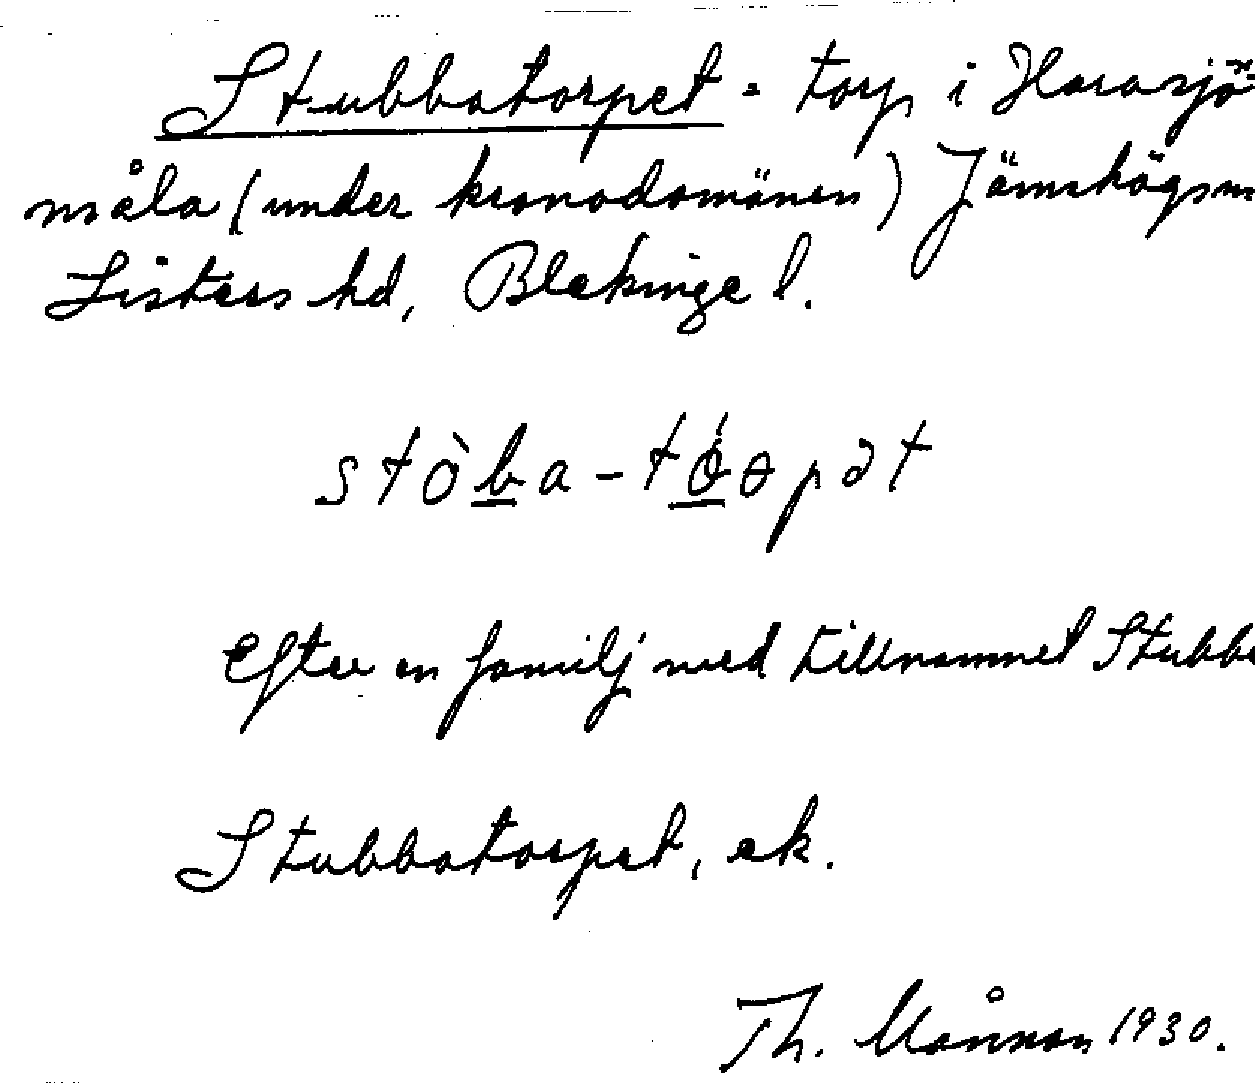 Stubbatorpet = torp i Harasjö-
måla (under kronodomänen) Jämshögs
Listers hd, Blekinge l.
stòba-tǿɵpət
Efter en familj med tillnamnet Stubbe
Stubbatorpet, ek.
Th. Månson 1930.